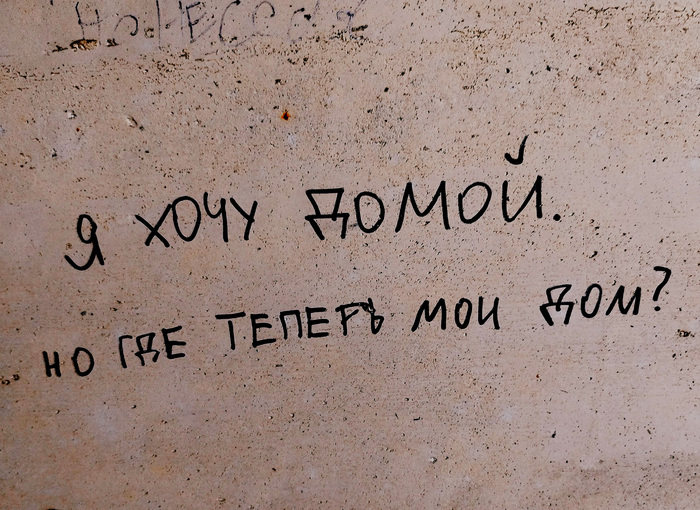 Я ХОЧУ ДОМОЙ.
НО ГДЕ ТЕПЕРЬ МОИ ДОМ?